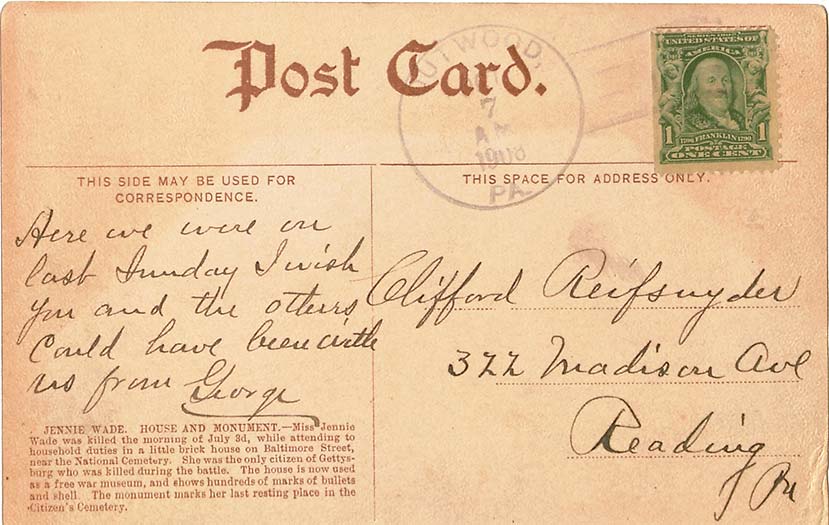 Post Card.
7
AM
1908
PA.
SERIES 1902
UNITED STATES OF
AMERICA
1706 FRANKLIN 1790
1 1
POSTAGE
ONE CENT
THIS SIDE MAY BE USED FOR
CORRESPONDENCE.
Here we were on
last Sunday I wish
you and the others
Could have been with
us from George
JENNIE WADE. HOUSE AND MONUMENT.—Miss Jennie
Wade was killed the morning of July 3d, while attending to
household duties in a little brick house on Baltimore Street,
near the National Cemetery. She was the only citizen of Gettys-
burg who was killed during the battle. The house is now used
as a free war museum, and shows hundreds of marks of bullets
and shell. The monument marks her last resting place in the
Citizen's Cemetery.
THIS SPACE FOR ADDRESS ONLY.
Clifford Reifsnyder
322 Madison Ave
Reading
Pa